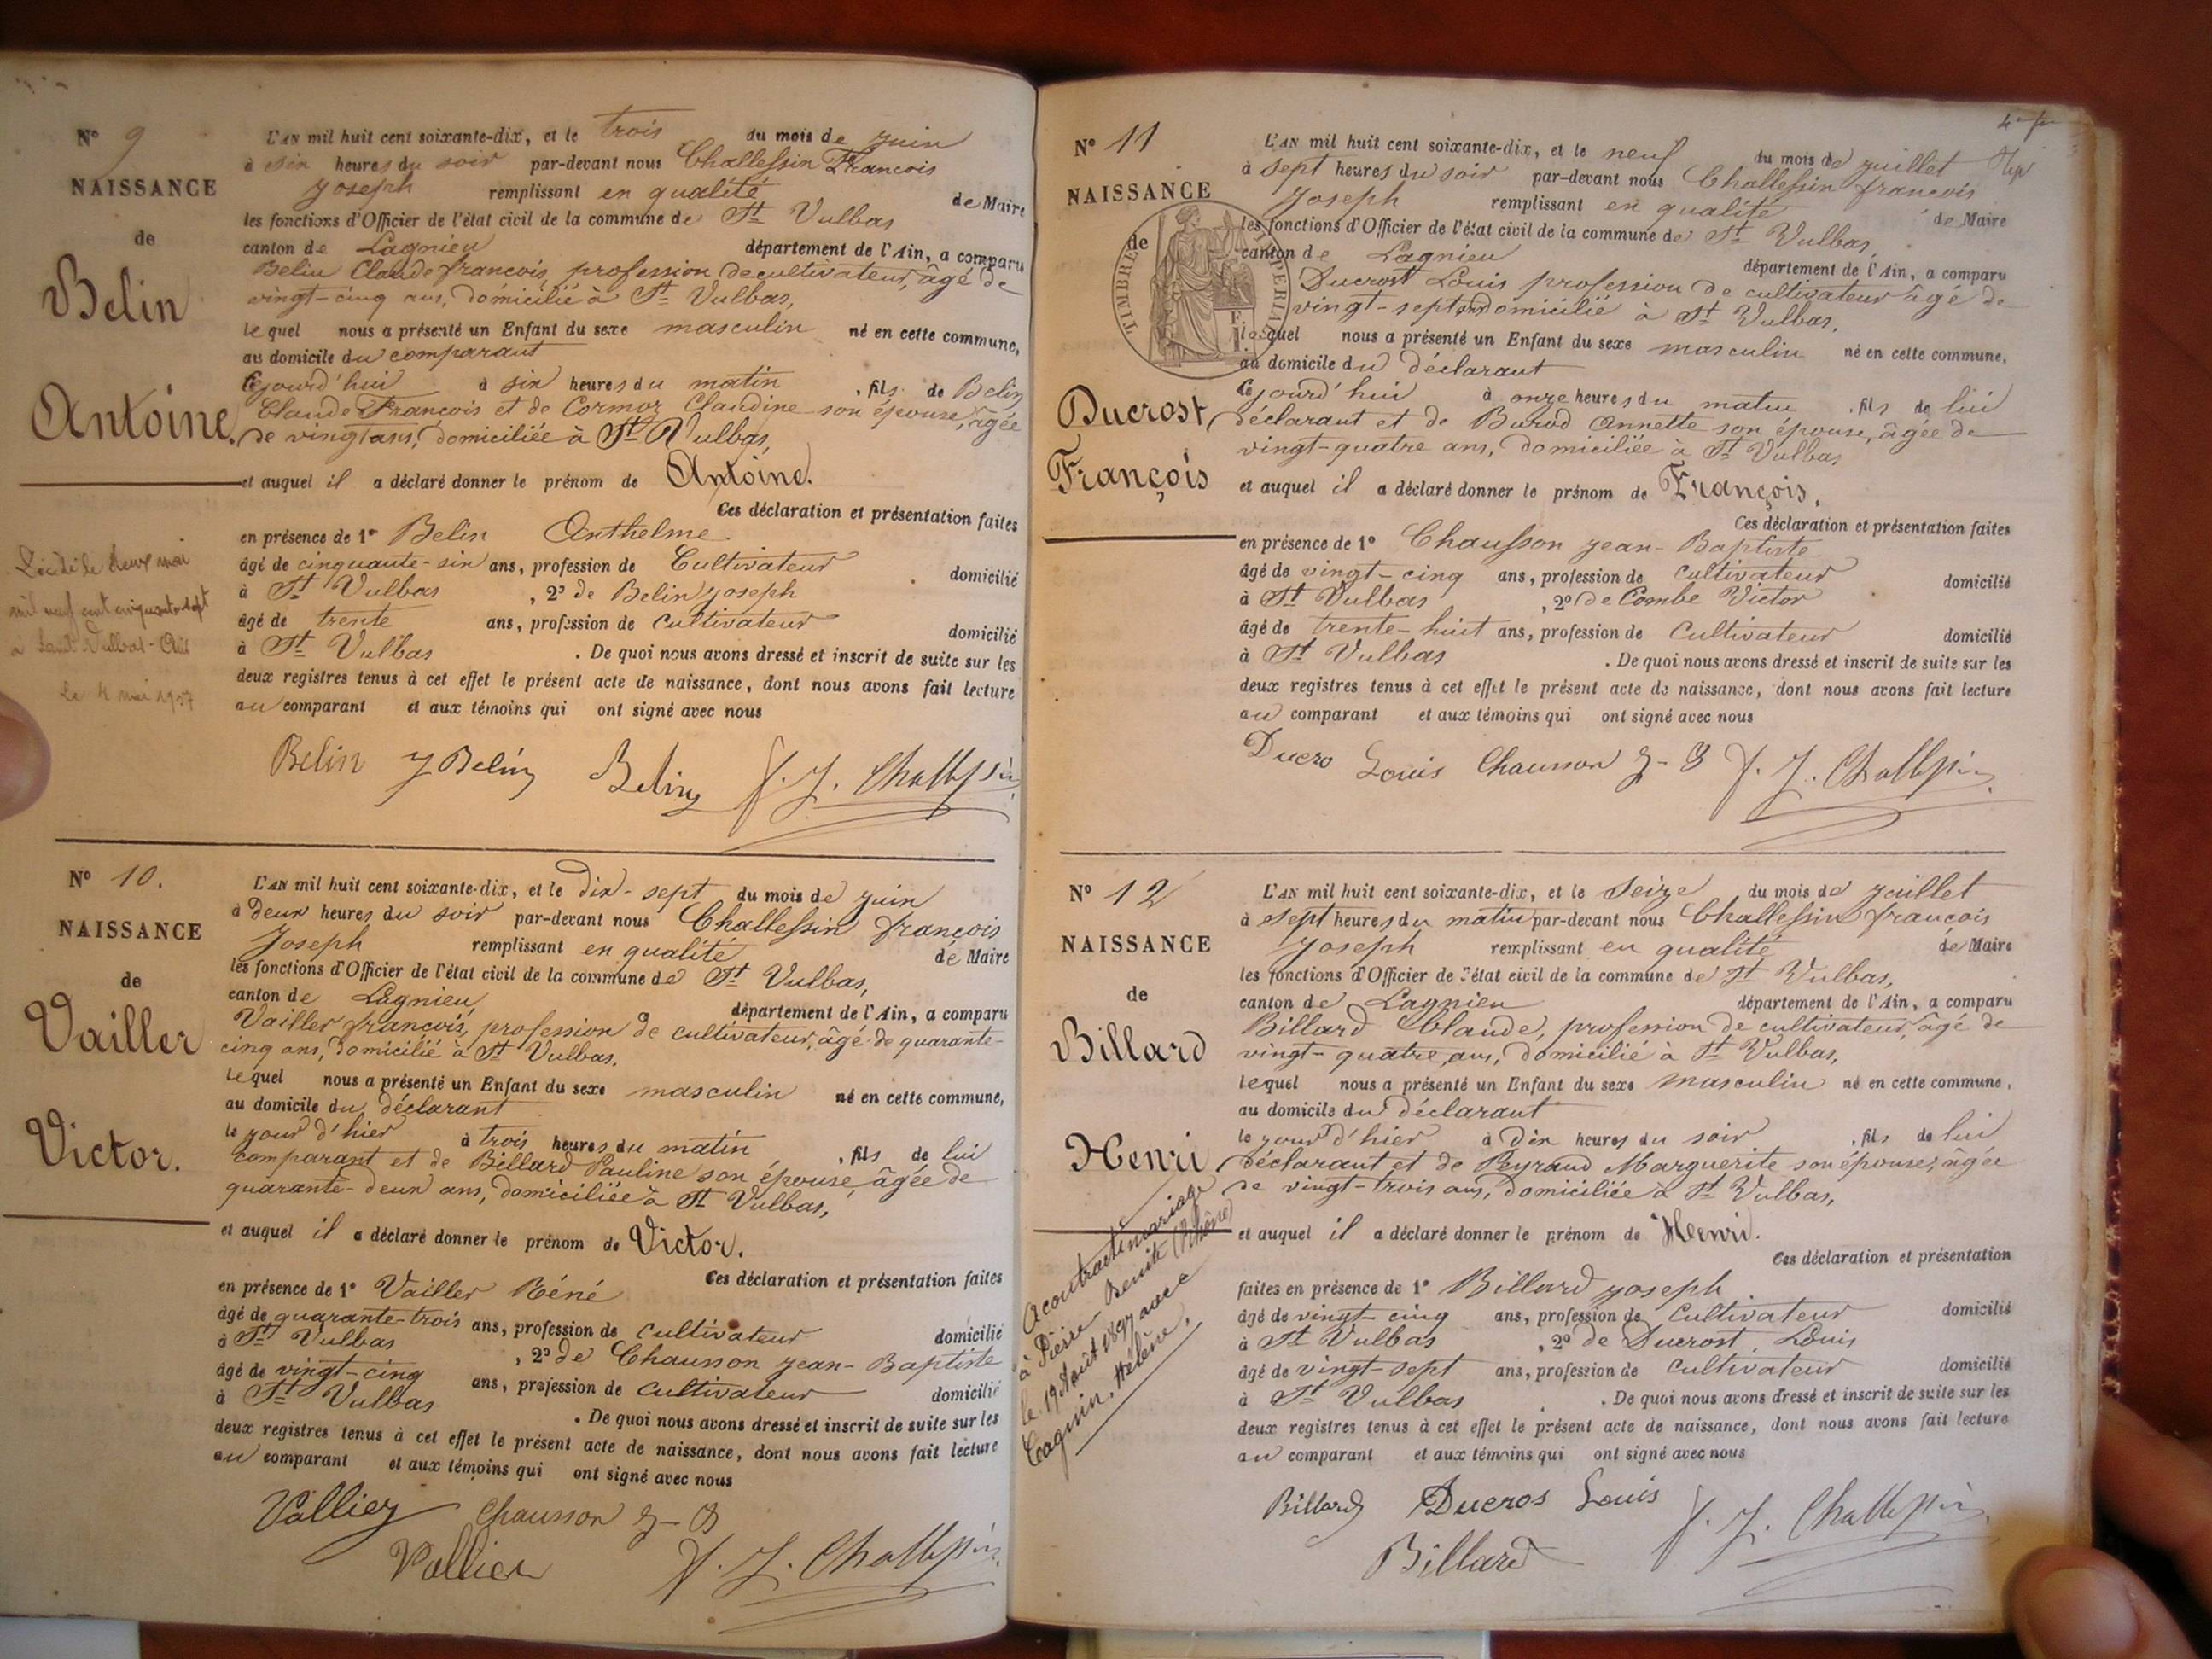 N° 9
NAISSANCE
de
Belin
Antoine.
Décédé le deux mai
mil neuf cent cinquante-sept
à Saint Vulbas - Ain
le 4 mai 1957
L'AN mil huit cent soixante-dix, et le trois du mois de juin
à six heures du soir par-devant nous Challessin François
Joseph remplissant en qualité de Maire
les fonctions d'Officier de l'état civil de la commune de St Vulbas
canton de Lagnieu département de l'Ain, a comparu
Belin Claude françois, profession de cultivateur, âgé de
vingt-cinq ans, domicilié à St Vulbas,
lequel nous a présenté un Enfant du sexe masculin né en cette commune,
au domicile du comparant
Cejourd'hui à six heures du matin, fils de Belin
Claude François et de Cormoz Claudine son épouse, âgée
de vingt ans, domiciliée à St Vulbas,
et auquel il a déclaré donner le prénom de Antoine.
Ces déclaration et présentation faites
en présence de 1° Belin Anthelme
âgé de cinquante-six ans, profession de Cultivateur domicilié
à St Vulbas, 2° de Belin joseph
âgé de trente ans, profession de cultivateur domicilié
à St Vulbas. De quoi nous avons dressé et inscrit de suite sur les
deux registres tenus à cet effet le présent acte de naissance, dont nous avons fait lecture
au comparant et aux témoins qui ont signé avec nous
Belin J Belin Belin f. J. Challessin
N° 10.
NAISSANCE
de
Vailler
Victor.
L'AN mil huit cent soixante-dix, et le dix-sept du mois de juin
à deux heures du soir par-devant nous Challessin françois
Joseph remplissant en qualité de Maire
les fonctions d'Officier de l'état civil de la commune de St Vulbas,
canton de Lagnieu département de l'Ain, a comparu
Vailler françois, profession de cultivateur, âgé de quarante-
cinq ans, domicilié à St Vulbas,
lequel nous a présenté un Enfant du sexe masculin né en cette commune,
au domicile du déclarant
le jour d'hier à trois heures du matin, fils de lui
comparant et de Billard Pauline son épouse, âgée de
quarante-deux ans, domiciliée à St Vulbas,
et auquel il a déclaré donner le prénom de Victor.
Ces déclaration et présentation faites
en présence de 1° Vailler Réné
âgé de quarante-trois ans, profession de cultivateur domicilié
à St Vulbas, 2° de Chausson jean-Baptiste
âgé de vingt-cinq ans, profession de cultivateur domicilié
à St Vulbas. De quoi nous avons dressé et inscrit de suite sur les
deux registres tenus à cet effet le présent acte de naissance, dont nous avons fait lecture
au comparant et aux témoins qui ont signé avec nous
Vallier Chausson J-B
Vallier f. J. Challessin
N° 11
NAISSANCE
de
TIMBRE IMPERIAL
Ducrost
François
L'AN mil huit cent soixante-dix, et le neuf du mois de juillet
à sept heures du soir par-devant nous Challessin françois
Joseph remplissant en qualité de Maire
les fonctions d'Officier de l'état civil de la commune de St Vulbas,
canton de Lagnieu département de l'Ain, a comparu
Ducrost Louis profession de cultivateur âgé de
vingt-sept ans domicilié à St Vulbas,
lequel nous a présenté un Enfant du sexe masculin né en cette commune,
au domicile du déclarant
Cejourd'hui à onze heures du matin, fils de lui
déclarant et de Burod Annette son épouse, âgée de
vingt-quatre ans, domiciliée à St Vulbas,
et auquel il a déclaré donner le prénom de François.
Ces déclaration et présentation faites
en présence de 1° Chausson jean-Baptiste
âgé de vingt-cinq ans, profession de cultivateur domicilié
à St Vulbas, 2° de Combe Victor
âgé de trente-huit ans, profession de Cultivateur domicilié
à St Vulbas. De quoi nous avons dressé et inscrit de suite sur les
deux registres tenus à cet effet le présent acte de naissance, dont nous avons fait lecture
au comparant et aux témoins qui ont signé avec nous
Ducro Louis Chausson J-B f. J. Challessin
N° 12
NAISSANCE
de
Billard
Henri
A contracté mariage
à Pierre-Bénite (Rhône)
le 19 Août 1897 avec
Coagnin, Hélène.
L'AN mil huit cent soixante-dix, et le seize du mois de juillet
à sept heures du matin par-devant nous Challessin françois
Joseph remplissant en qualité de Maire
les fonctions d'Officier de l'état civil de la commune de St Vulbas,
canton de Lagnieu département de l'Ain, a comparu
Billard Claude, profession de cultivateur, âgé de
vingt-quatre ans, domicilié à St Vulbas,
lequel nous a présenté un Enfant du sexe masculin né en cette commune,
au domicile du déclarant
le jour d'hier à dix heures du soir, fils de lui
déclarant et de Peyraud Marguerite son épouse, âgée
de vingt-trois ans, domiciliée à St Vulbas,
et auquel il a déclaré donner le prénom de Henri.
Ces déclaration et présentation
faites en présence de 1° Billard joseph
âgé de vingt-cinq ans, profession de Cultivateur domicilié
à St Vulbas, 2° de Ducrost Louis
âgé de vingt-sept ans, profession de cultivateur domicilié
à St Vulbas. De quoi nous avons dressé et inscrit de suite sur les
deux registres tenus à cet effet le présent acte de naissance, dont nous avons fait lecture
au comparant et aux témoins qui ont signé avec nous
Billard Ducros Louis f. J. Challessin
Billard